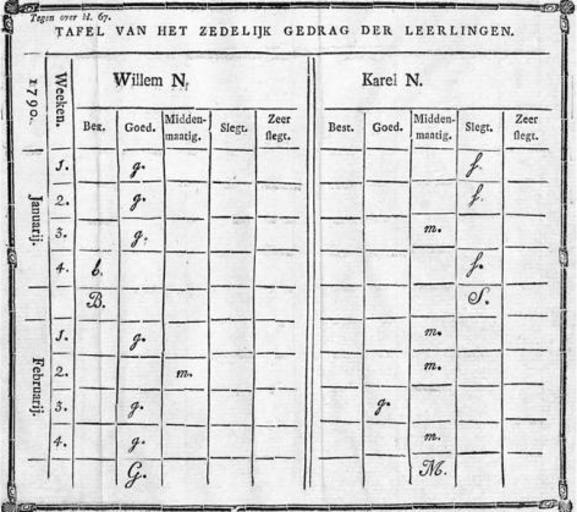 Tegen over bl. 67.
TAFEL VAN HET ZEDELIJK GEDRAG DER LEERLINGEN.
1790. Weeken. Willem N. Karel N.
Bez. Goed. Midden-maatig. Slegt. Zeer slegt. Best. Goed. Midden-maatig. Slegt. Zeer slegt.
Januarij.
1. g. s.
2. g. s.
3. g. m.
4. b. s.
B. S.
Februarij.
1. g. m.
2. m. m.
3. g. g.
4. g. m.
G. M.